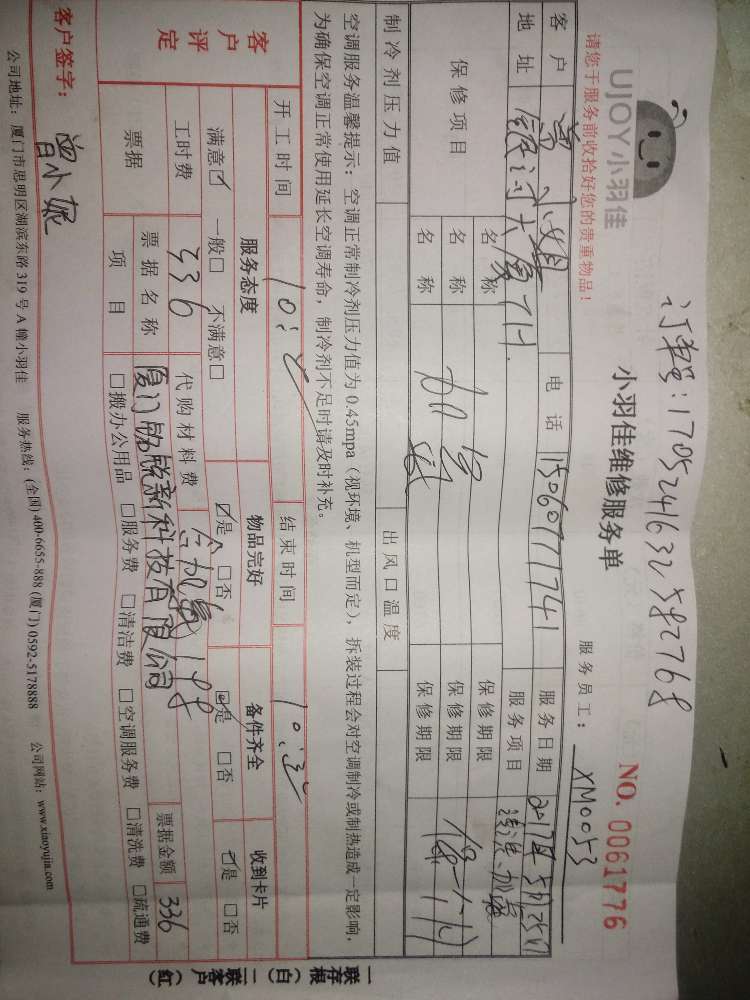 订单号：1705241632582768
UJOY小羽佳
小羽佳维修服务单
NO. 0061776
请您于服务前收拾好您的贵重物品！
服务员工：XM0053
客户 曾小姐 电话 15060771741 服务日期 2017年5月25日
地址 服务项目 清洗、加氟
保修项目 名称 加氟 保修期限 保一个月
名称 保修期限
名称 保修期限
制冷剂压力值 出风口温度
空调服务温馨提示：空调正常制冷剂压力值为0.45mpa（视环境、机型而定），拆装过程会对空调制冷或制热造成一定影响，
为确保空调正常使用延长空调寿命，制冷剂不足时请及时补充。
开工时间 结束时间
客户评定 服务态度 物品完好 备件齐全 收到卡片
满意☑ 一般□ 不满意□ ☑是 □否 ☑是 □否 ☑是 □否
工时费 336 代购材料费 含加氟198
票据 票据名称 票据金额 336
项目 □搬办公用品 □服务费 □清洁费 □空调服务费 □清洗费 □疏通费
客户签字：
公司地址：厦门市思明区湖滨东路319号A幢小羽佳 服务热线：(全国)400-6655-888 (厦门)0592-5178888 公司网站：www.xiaoyujia.com
一联存根（白）二联客户（红）